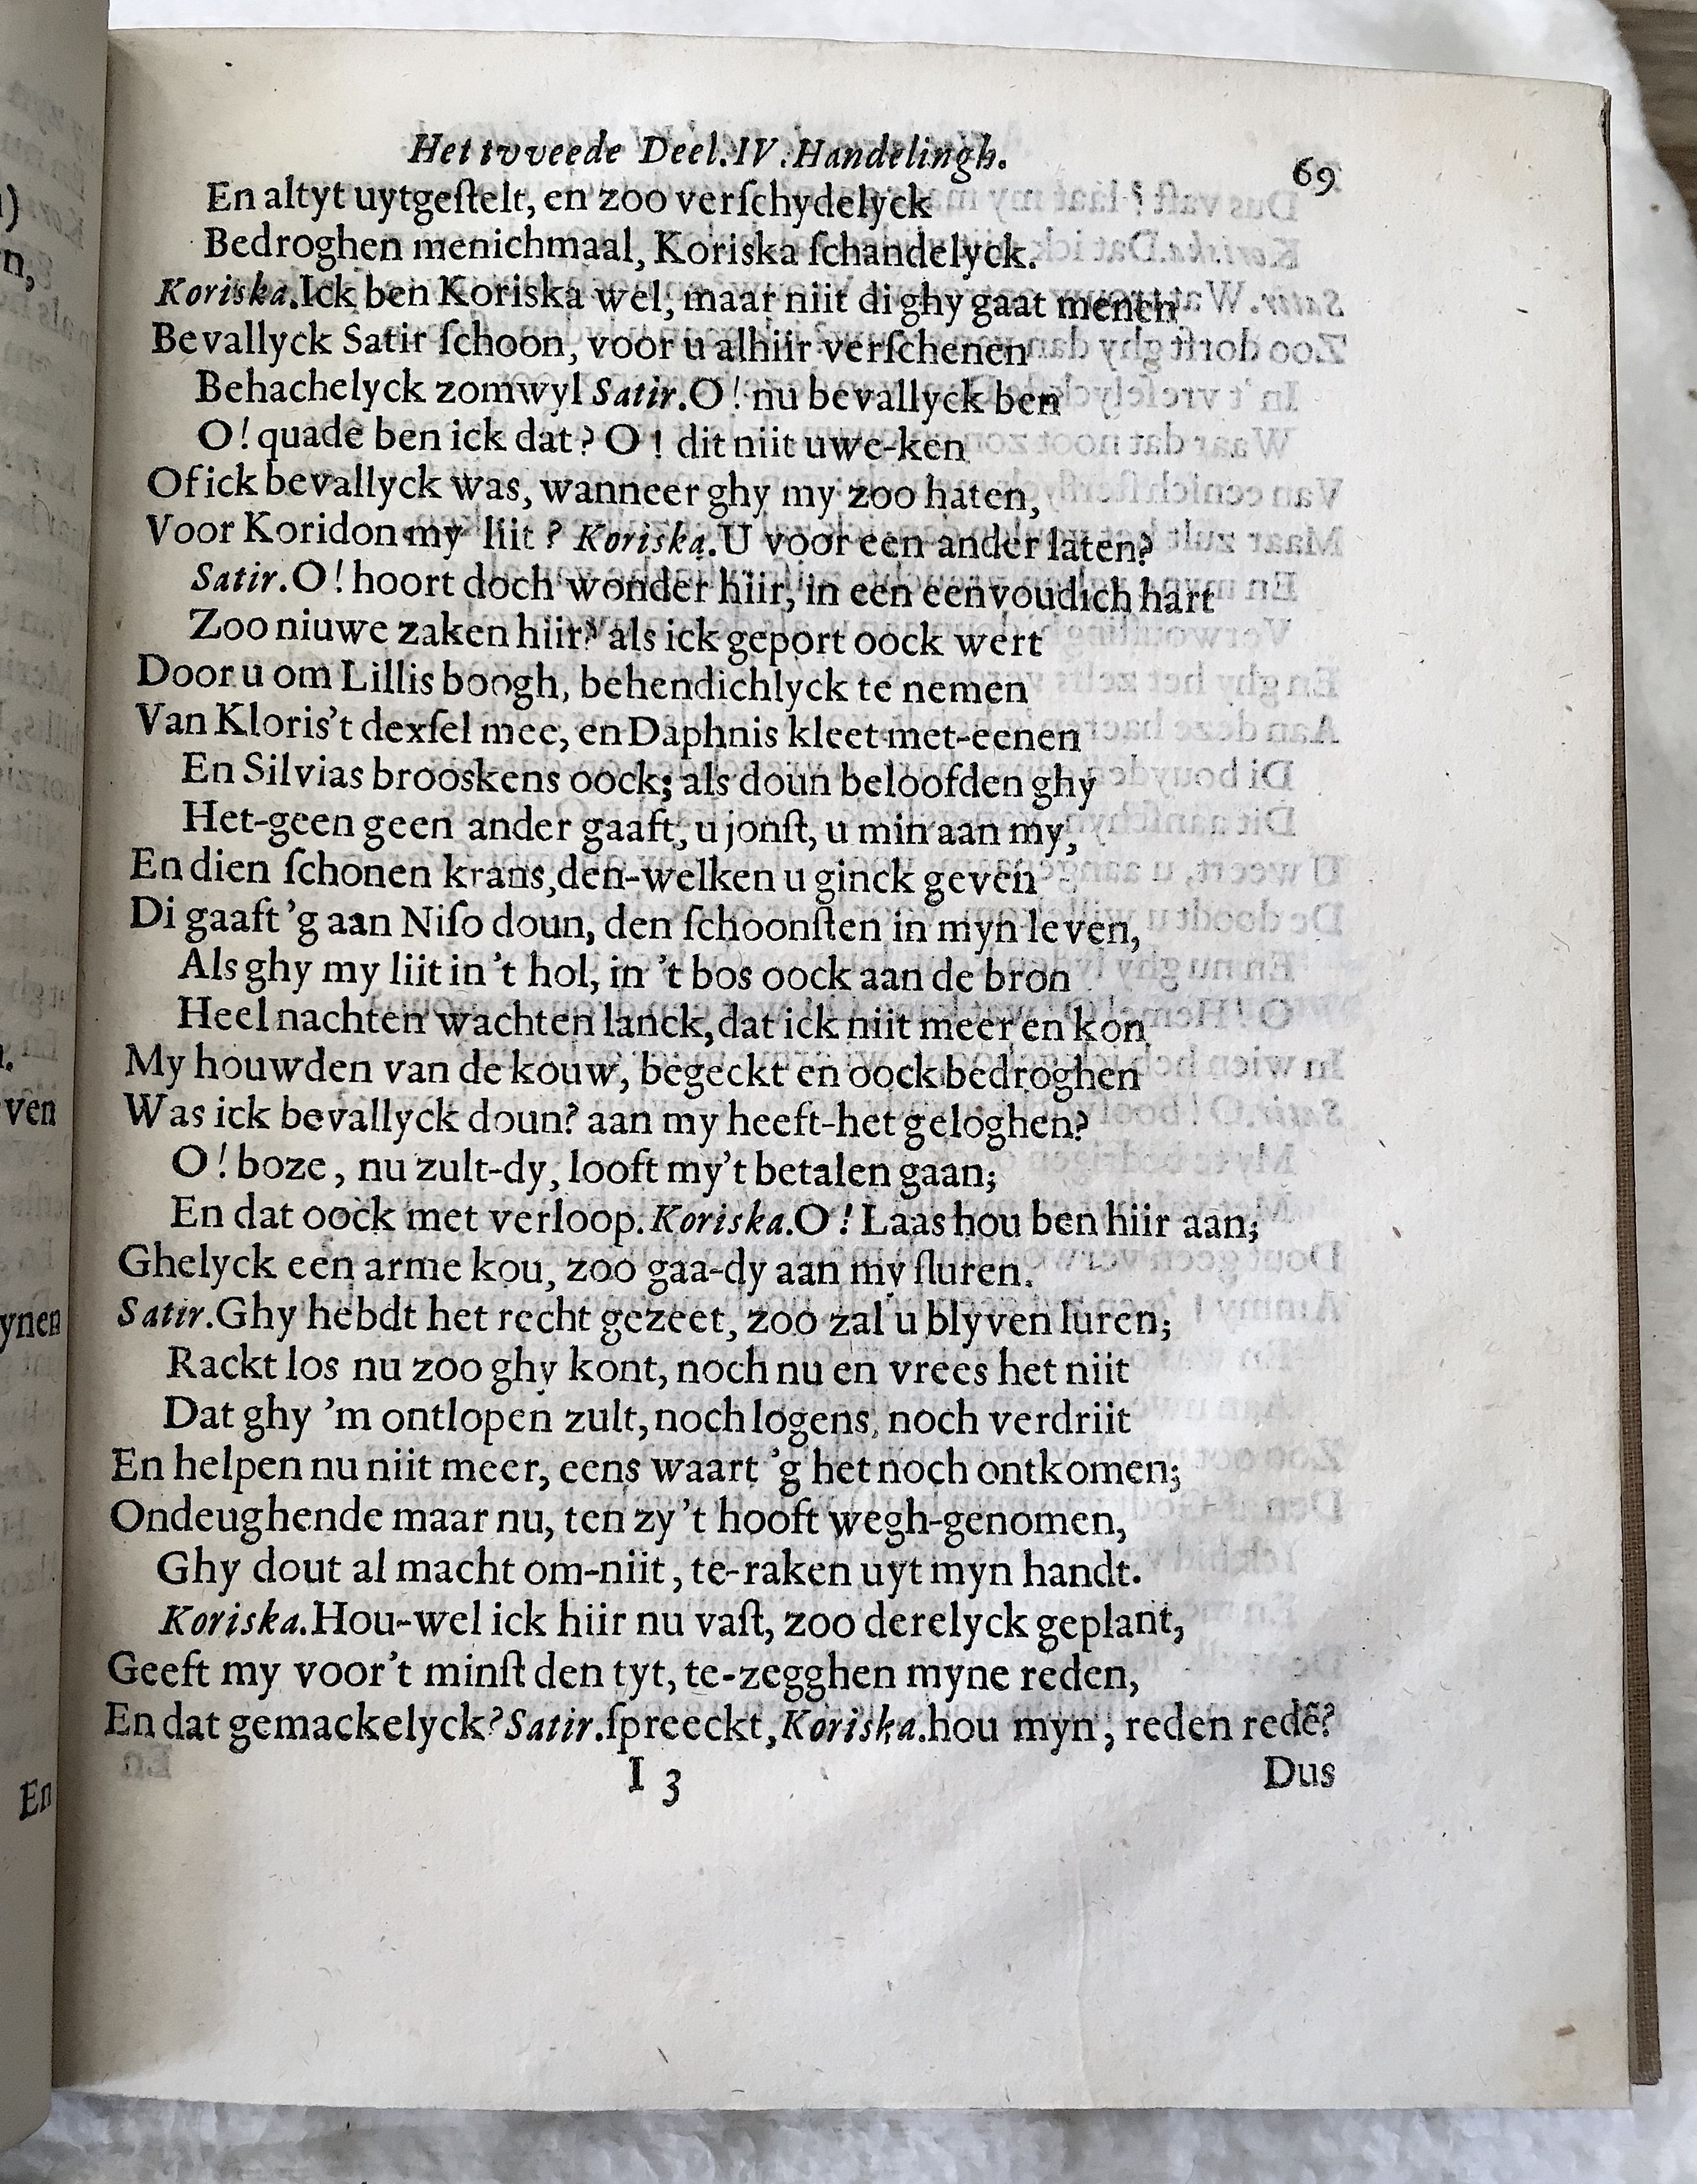 Het tvveede Deel.IV.Handelingh. 69
En altyt uytgeſtelt, en zoo verſchydelyck
Bedroghen menichmaal, Koriska ſchandelyck.
Koriska.Ick ben Koriska wel, maar niit di ghy gaat menen
Bevallyck Satir ſchoon, voor u alhiir verſchenen
Behachelyck zomwyl Satir.O! nu bevallyck ben
O! quade ben ick dat? O! dit niit uwe-ken
Of ick bevallyck was, wanneer ghy my zoo haten,
Voor Koridon my liit? Koriska.U voor een ander laten?
Satir.O! hoort doch wonder hiir, in een eenvoudich hart
Zoo niuwe zaken hiir? als ick geport oock wert
Door u om Lillis boogh, behendichlyck te nemen
Van Kloris't dexſel mee, en Daphnis kleet met-eenen
En Silvias brooskens oock; als doun beloofden ghy
Het-geen geen ander gaaft, u jonſt, u min aan my,
En dien ſchonen krans, den-welken u ginck geven
Di gaaft 'g aan Niſo doun, den ſchoonſten in myn leven,
Als ghy my liit in 't hol, in 't bos oock aan de bron
Heel nachten wachten lanck, dat ick niit meer en kon
My houwden van de kouw, begeckt en oock bedroghen
Was ick bevallyck doun? aan my heeft-het geloghen?
O! boze, nu zult-dy, looft my't betalen gaan;
En dat oock met verloop. Koriska.O! Laas hou ben hiir aan;
Ghelyck een arme kou, zoo gaa-dy aan my ſluren.
Satir.Ghy hebdt het recht gezeet, zoo zal u blyven luren;
Rackt los nu zoo ghy kont, noch nu en vrees het niit
Dat ghy 'm ontlopen zult, noch logens, noch verdriit
En helpen nu niit meer, eens waart 'g het noch ontkomen;
Ondeughende maar nu, ten zy 't hooft wegh-genomen,
Ghy dout al macht om-niit, te-raken uyt myn handt.
Koriska.Hou-wel ick hiir nu vaſt, zoo derelyck geplant,
Geeft my voor't minſt den tyt, te-zegghen myne reden,
En dat gemackelyck? Satir.ſpreeckt, Koriska.hou myn, reden redẽ?
I 3 Dus
n,
ven
ynen
En